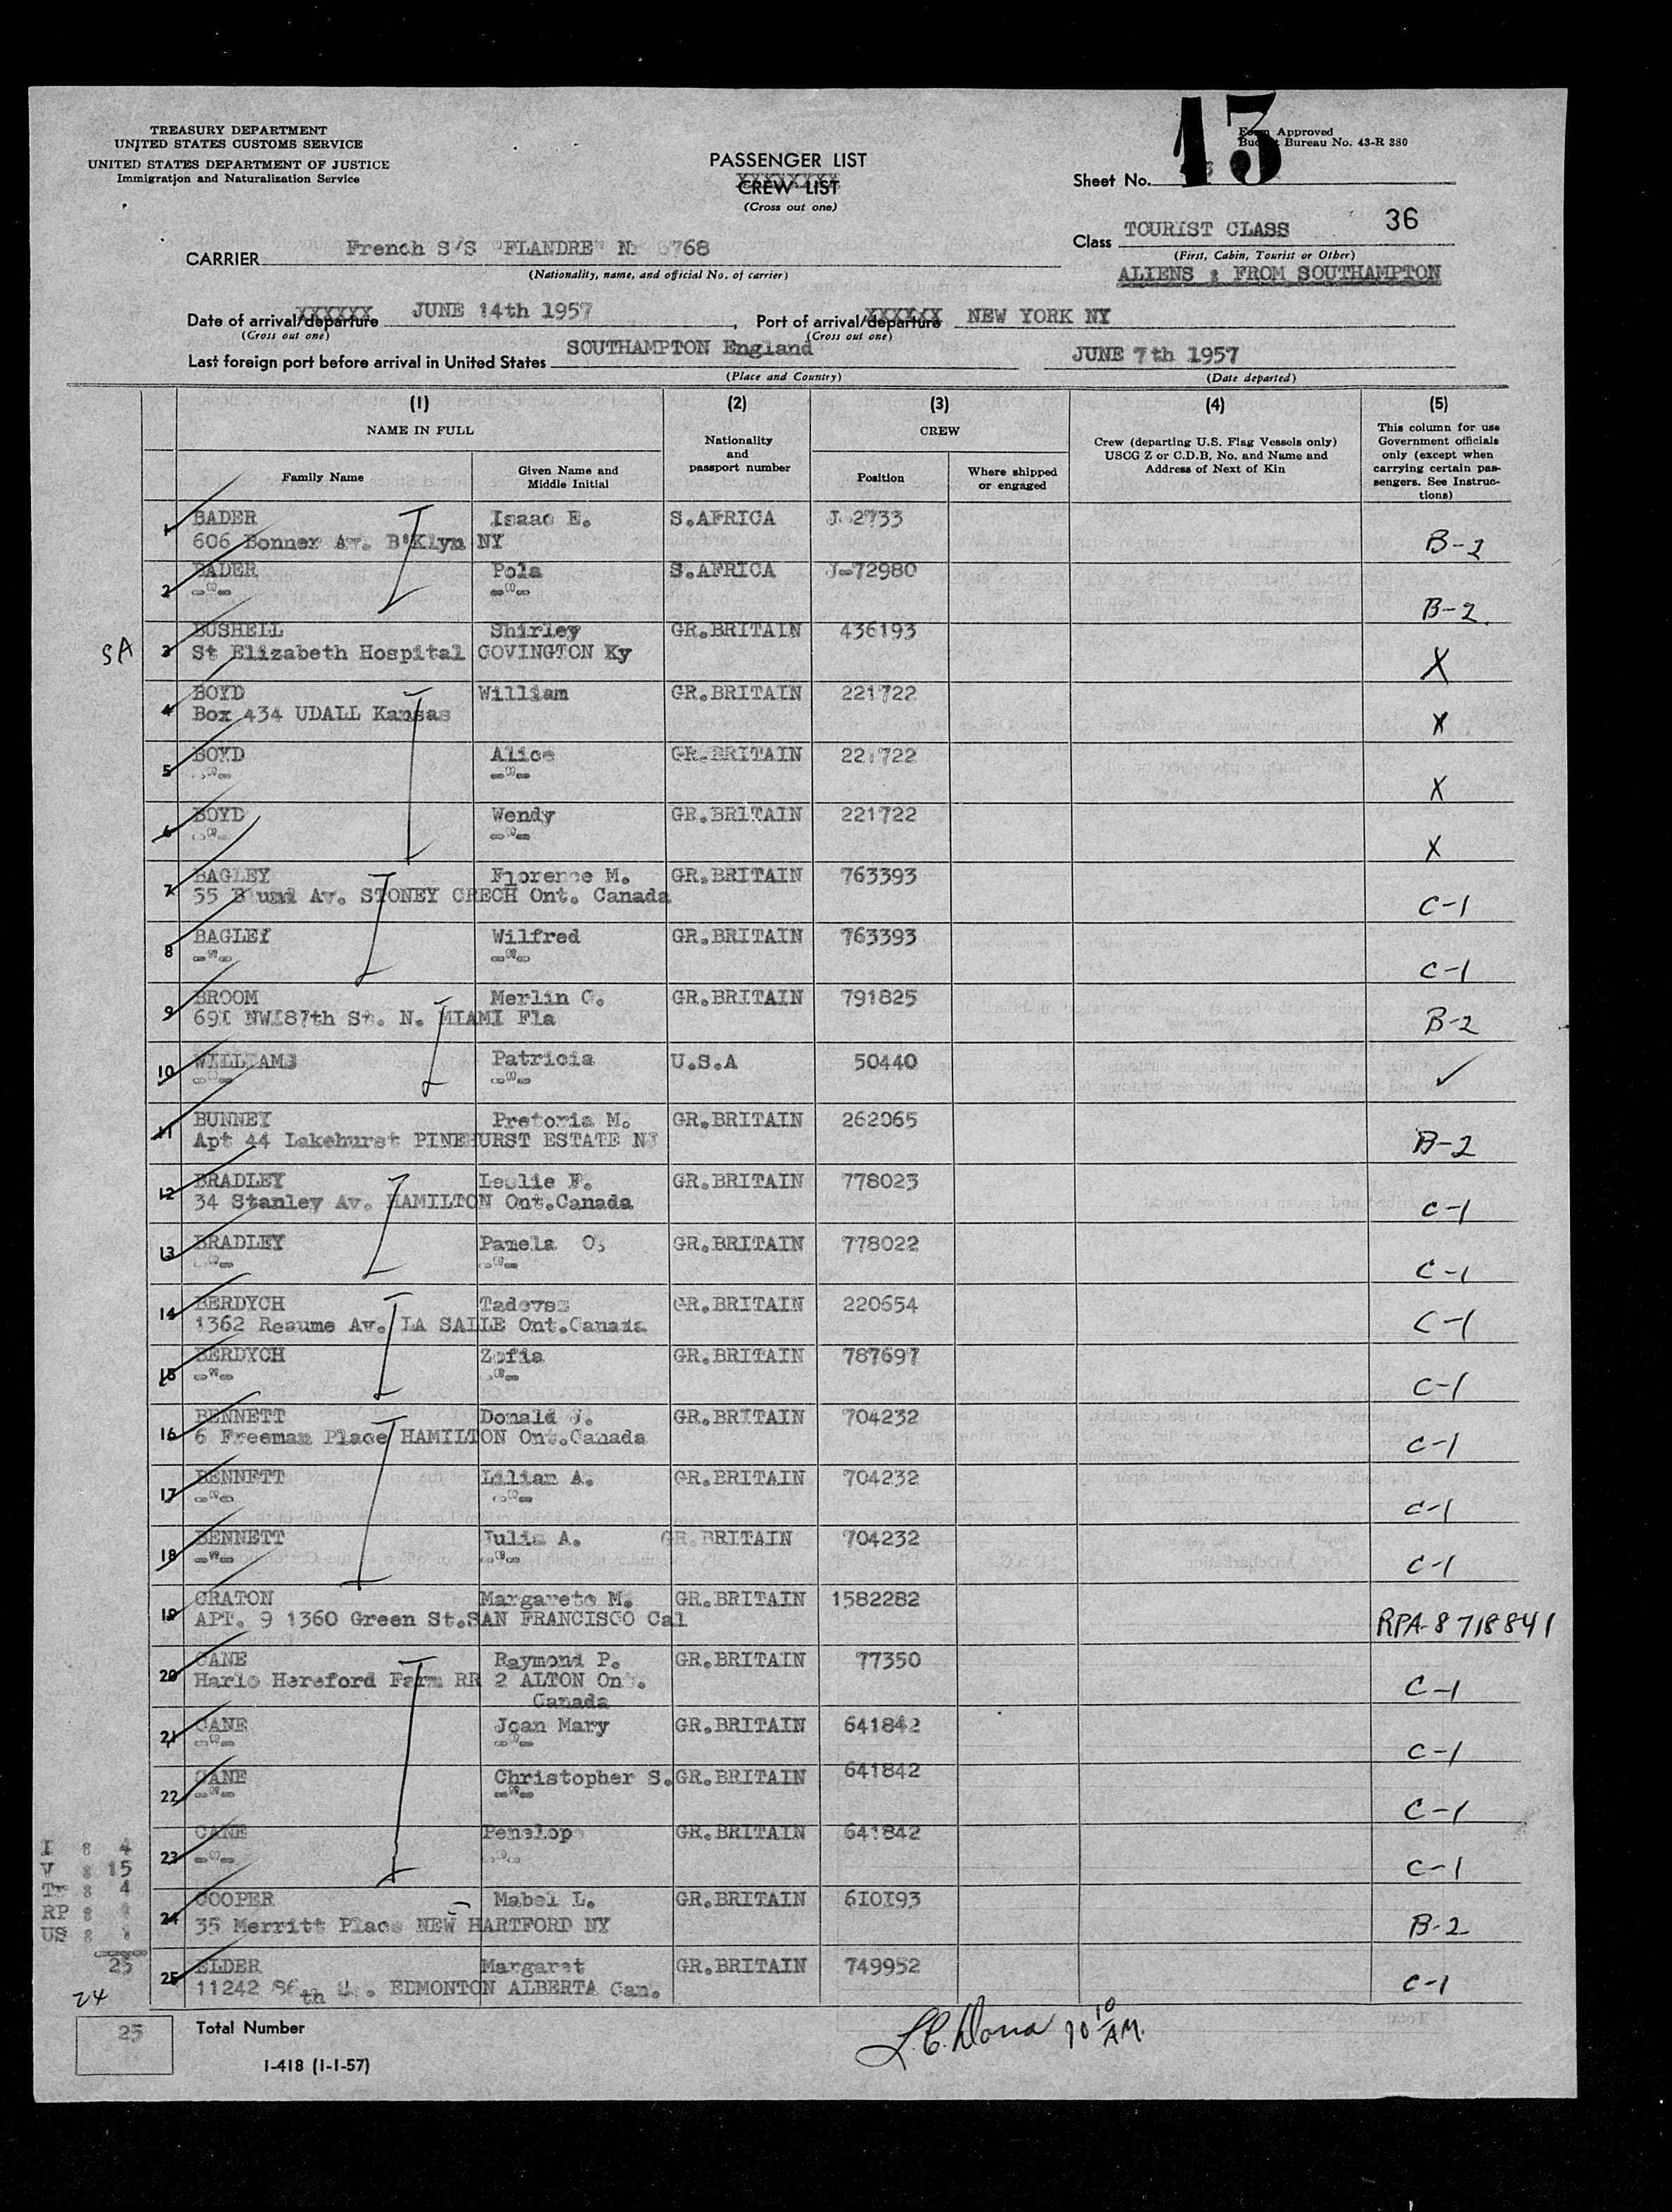 TREASURY DEPARTMENT
UNITED STATES CUSTOMS SERVICE
UNITED STATES DEPARTMENT OF JUSTICE
Immigration and Naturalization Service
PASSENGER LIST
CREW LIST
(Cross out one)
13
Form Approved
Budget Bureau No. 43-R 380
Sheet No.
Class TOURIST CLASS 36
(First, Cabin, Tourist or Other)
ALIENS : FROM SOUTHAMPTON
CARRIER French S/S "FLANDRE" 768
(Nationality, name, and official No. of carrier)
Date of arrival/departure JUNE 14th 1957, Port of arrival/departure NEW YORK NY
(Cross out one) (Cross out one)
Last foreign port before arrival in United States SOUTHAMPTON England JUNE 7th 1957
(Place and Country) (Date departed)
(1) (2) (3) (4) (5)
NAME IN FULL
Nationality and passport number
CREW
Crew (departing U.S. Flag Vessels only) USCG Z or C.D.B. No. and Name and Address of Next of Kin
This column for use Government officials only (except when carrying certain passengers. See Instructions)
Family Name Given Name and Middle Initial Position Where shipped or engaged
1 BADER Isaac E. S.AFRICA J 2733
606 Bonner Av. B'Klyn NY B-2
2 BADER Pola S.AFRICA J-72980
-"- -"- B-2
SA 3 BUSHELL Shirley GR.BRITAIN 436193
St Elizabeth Hospital COVINGTON Ky X
4 BOYD William GR.BRITAIN 221722
Box 434 UDALL Kansas X
5 BOYD Alice GR.BRITAIN 221722
-"- -"- X
6 BOYD Wendy GR.BRITAIN 221722
-"- -"- X
7 BAGLEY Florence M. GR.BRITAIN 763393
55 Av. STONEY CRECH Ont. Canada C-1
8 BAGLEY Wilfred GR.BRITAIN 763393
-"- -"- C-1
9 BROOM Merlin G. GR.BRITAIN 791825
69I NWI87th St. N. MIAMI Fla B-2
10 WILLIAMS Patricia U.S.A 50440
-"- -"- ✓
11 BUNNEY Pretoria M. GR.BRITAIN 262065
Apt 44 Lakehurst PINEHURST ESTATE NJ B-2
12 BRADLEY Leslie F. GR.BRITAIN 778023
34 Stanley Av. HAMILTON Ont.Canada C-1
13 BRADLEY Pamela O. GR.BRITAIN 778022
-"- -"- C-1
14 BERDYCH GR.BRITAIN 220654
1362 Reaume Av. LA SALLE Ont.Canada C-1
15 BERDYCH Zofia GR.BRITAIN 787697
-"- -"- C-1
16 BENNETT Donald J. GR.BRITAIN 704232
6 Freeman Place HAMILTON Ont.Canada C-1
17 BENNETT Lilian A. GR.BRITAIN 704232
-"- -"- C-1
18 BENNETT Julia A. GR.BRITAIN 704232
-"- -"- C-1
19 CRATON Margarete M. GR.BRITAIN 1582282
APT. 9 1360 Green St.SAN FRANCISCO Cal RPA-8718841
20 CANE Raymond P. GR.BRITAIN 77350
Harlo Hereford Farm RR 2 ALTON Ont. C-1
Canada
21 CANE Joan Mary GR.BRITAIN 641842
-"- -"- C-1
22 CANE Christopher S. GR.BRITAIN 641842
-"- -"- C-1
23 CANE Penelop GR.BRITAIN 641842
-"- -"- C-1
24 COOPER Mabel L. GR.BRITAIN 6I0I93
35 Merritt Place NEW HARTFORD NY B-2
25 ELDER Margaret GR.BRITAIN 749952
11242 86th . EDMONTON ALBERTA Can. C-1
I : 4
V : 15
Tr : 4
RP :
US :
25
24
25 Total Number
I-418 (1-1-57)
L.C. Dona 10 10 AM.